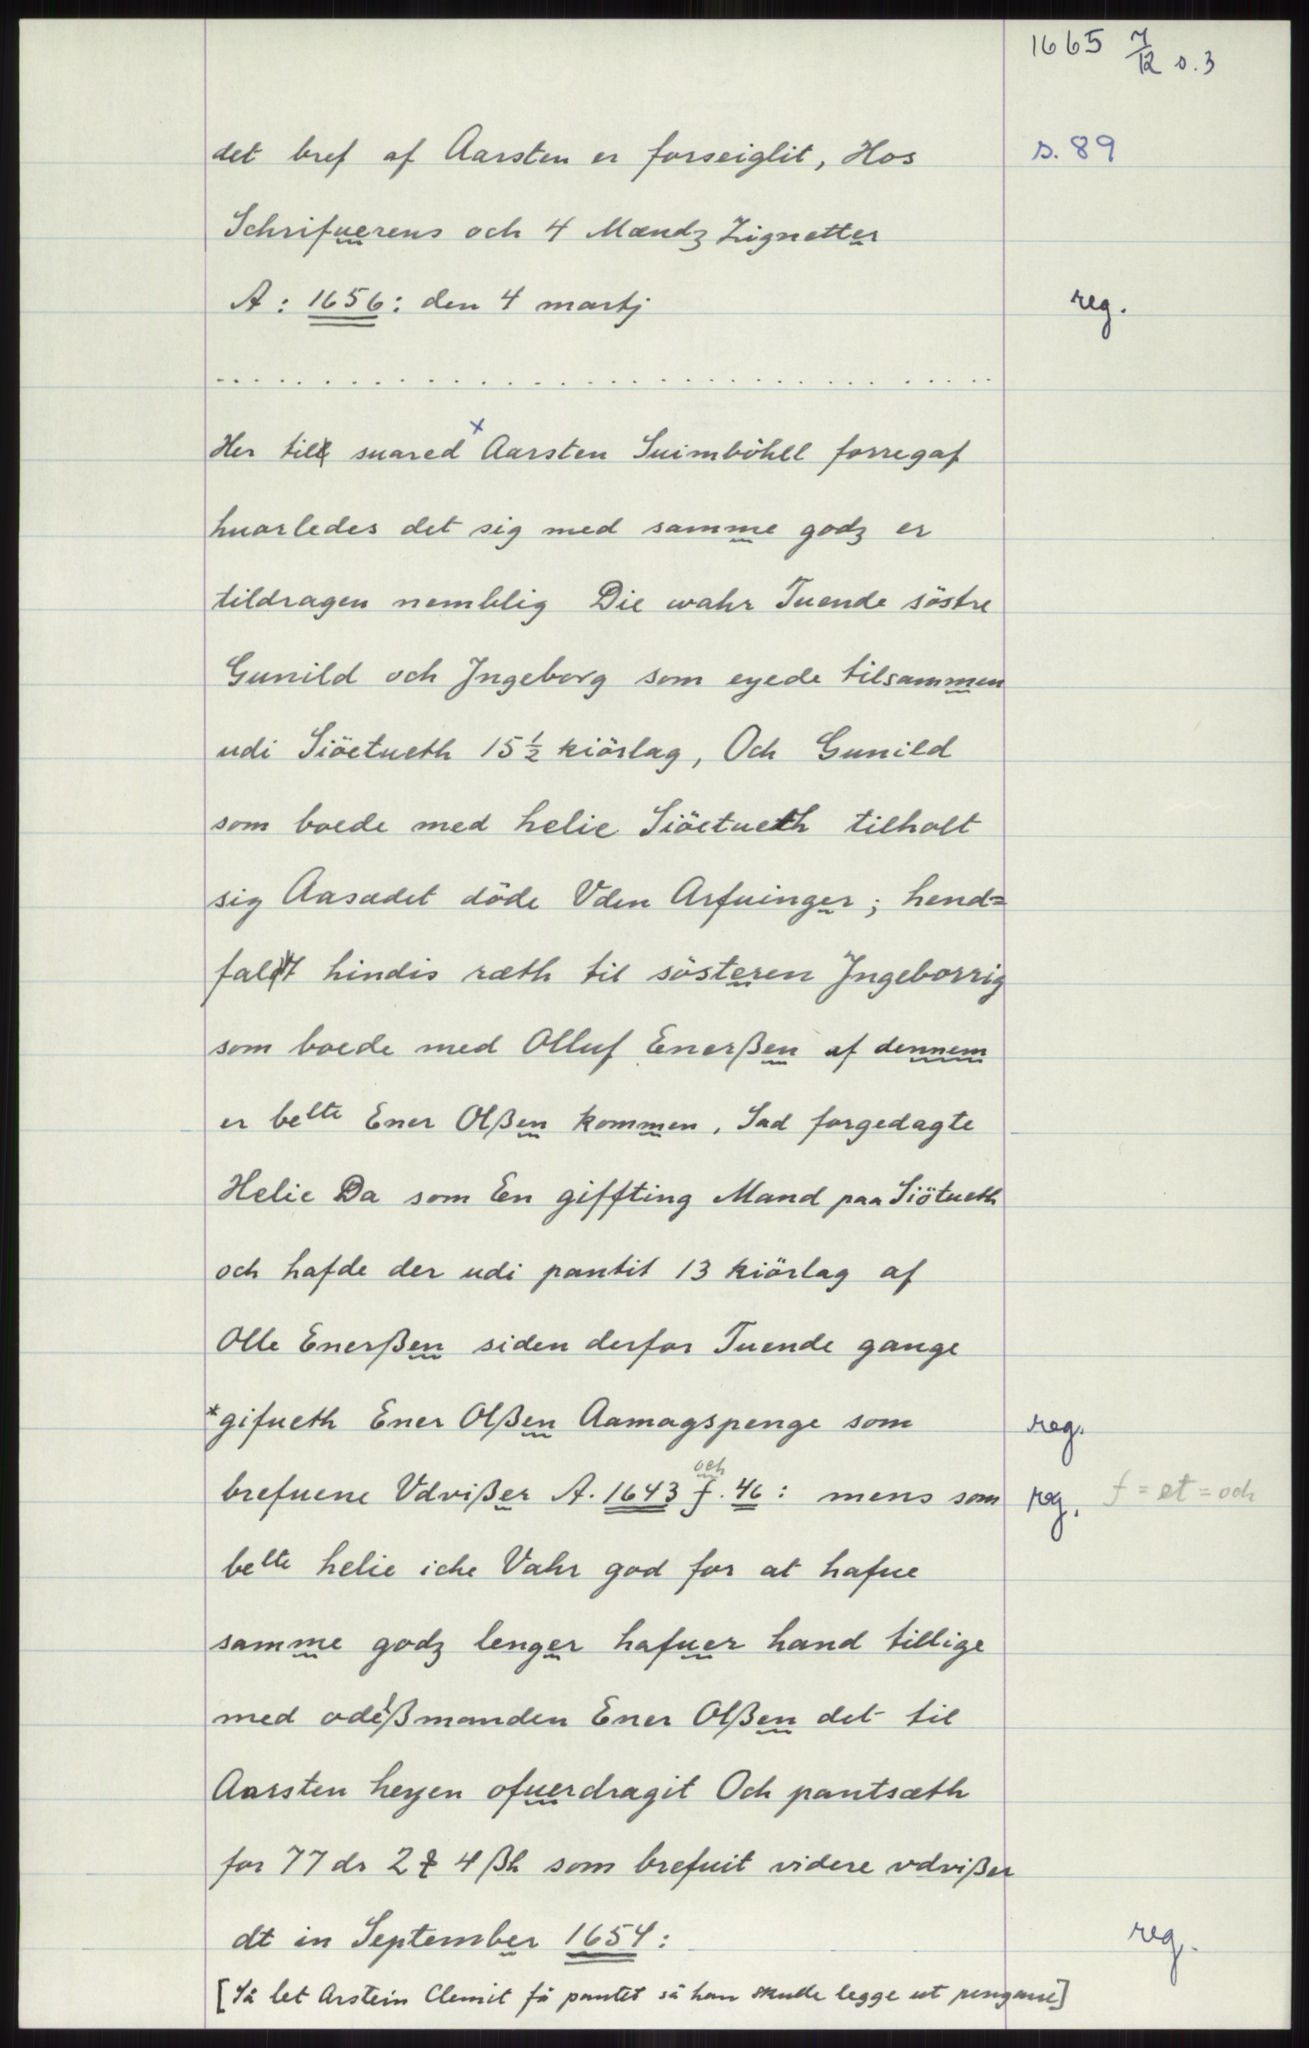 1665 7/12 s. 3
det bref af Aarsten er forseiglit, Hos
s. 89
Schrifuerens och 4 Mændz Zignetter
A: 1656: den 4 martj
reg.
. . . . . . . . . . . . . . . . . . . . . . . . . . . . .
Her till suared x Aarsten Suimböhll forregaf
huorledes det sig med samme godz er
tildragen nemblig Die wahr Tuende söstre
Gunild och Jngeborg som eyede tilsammen
udi Siöetueth 15 ½ kiörlag, Och Gunild
som boede med helie Siöetueth tilholt
sig Aasædet döde Vden Arfuinger; hend=
faldt hindis ræth til sösteren Jngeborrig
som boede med Olluf Enerßen af dennem
er belte Ener Olßen kommen. Sad forgedagte
Helie Da som En giffting Mand paa Siötueth
och hafde der udi pantit 13 kiörlag af
Olle Enerßen siden derfor Tuende gange
*gifueth Ener Olßen Aamagspenge som
reg.
och
brefuene Vdvißer A. 1643 f. 46: mens som
reg. f = et = och
belte helie iche Vahr god for at hafue
samme godz lenger hafuer hand tillige
med odelßmanden Ener Olßen det til
Aarsten heyen ofuerdragit Och pantsæth
for 77 dr 2 ꝑ 4 ßh som brefuit videre vdvißer
dt in September 1654:
reg.
[Så let Arstein Clemit få pantet så han skulle legge ut pengane]